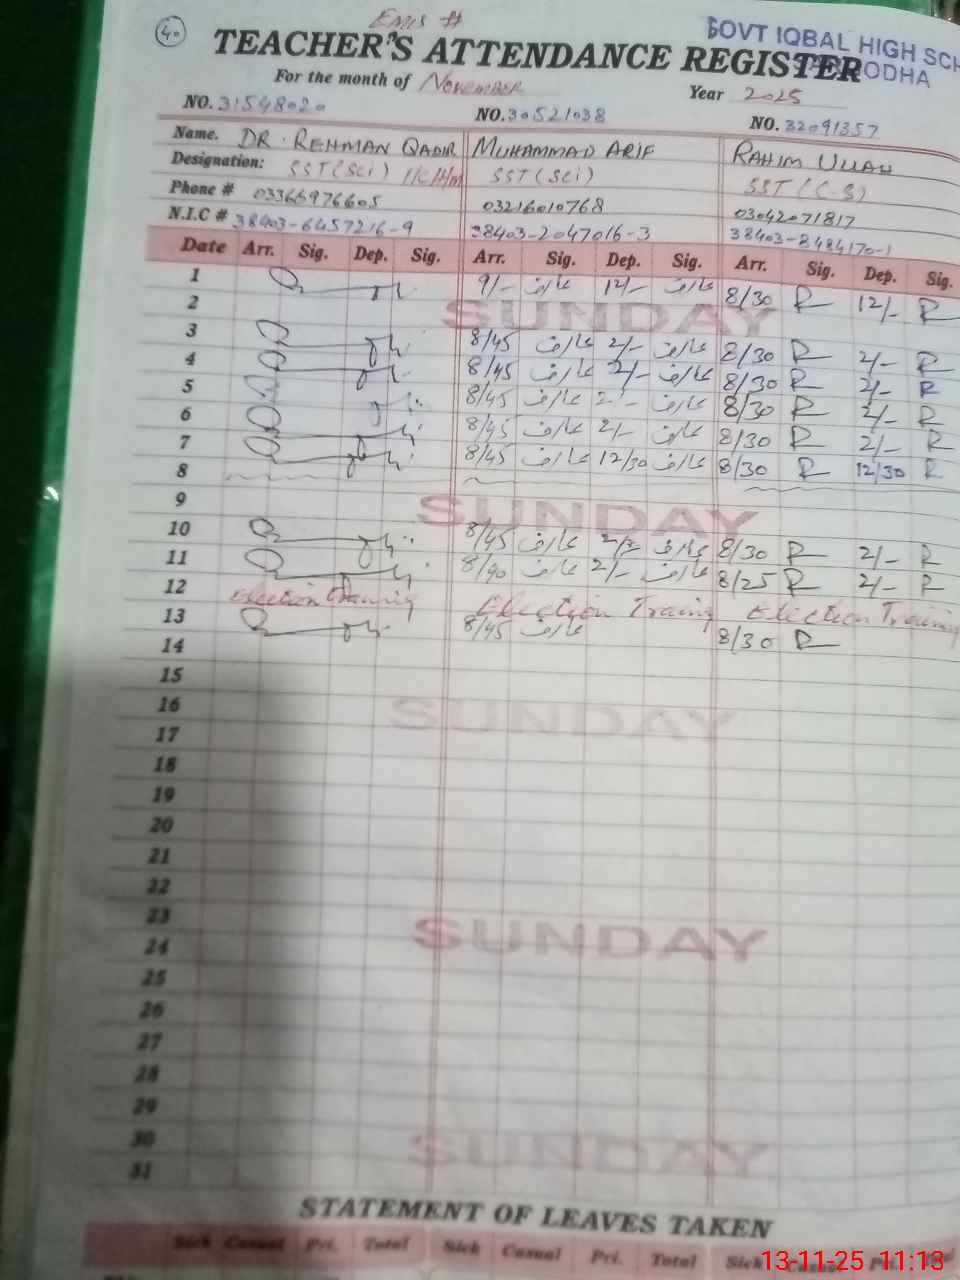 40
EMIS #
GOVT IQBAL HIGH SCH
TEACHER'S ATTENDANCE REGISTER
ODHA
For the month of November Year 2025
NO. 31548020 NO. 30521038 NO. 32091357
Name. DR. REHMAN QADIR MUHAMMAD ARIF RAHIM ULLAH
Designation: SST(Sci) SST(Sci) SST(C.S)
Phone # 03366976605 03216010768 03042071817
N.I.C # 38403-6457216-9 38403-2047016-3 38403-8484170-1
Date Arr. Sig. Dep. Sig. Arr. Sig. Dep. Sig. Arr. Sig. Dep. Sig.
1 9/- عارف 12/- عارف 8/30 R 12/- R
2 SUNDAY
3 8/45 عارف 2/- عارف 8/30 R 2/- R
4 8/45 عارف 2/- عارف 8/30 R 2/- R
5 8/45 عارف 2/- عارف 8/30 R 2/- R
6 8/45 عارف 2/- عارف 8/30 R 2/- R
7 8/45 عارف 12/30 عارف 8/30 R 12/30 R
8
9 SUNDAY
10 8/45 عارف عارف 8/30 R 2/- R
11 8/40 عارف 2/- عارف 8/25 R 2/- R
12 Election Training Election Training Election Training
13 8/45 عارف 8/30 R
14
15
16 SUNDAY
17
18
19
20
21
22
23 SUNDAY
24
25
26
27
28
29
30 SUNDAY
31
STATEMENT OF LEAVES TAKEN
Sick Casual Pri. Total Sick Casual Pri. Total Sick Casual Pri.
13-11-25 11:13